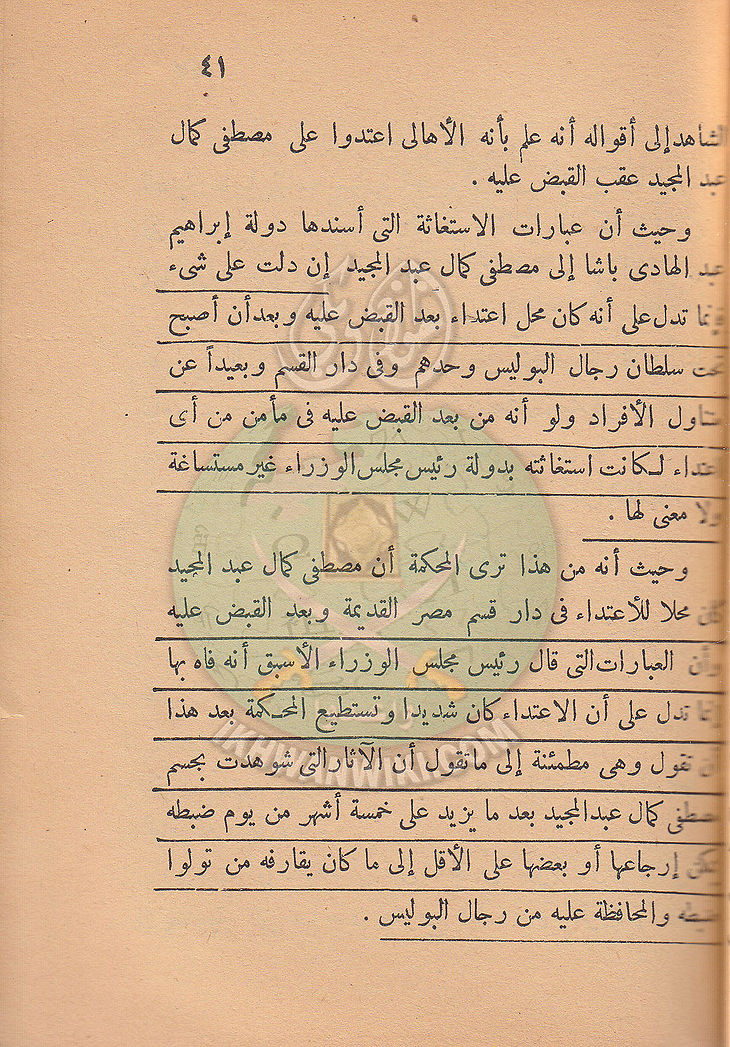 ٤١
الشاهد إلى أقواله أنه علم بأنه الأهالى اعتدوا على مصطفى كمال
عبد المجيد عقب القبض عليه .
وحيث أن عبارات الاستغاثة التى أسندها دولة إبراهيم
عبد الهادى باشا إلى مصطفى كمال عبد المجيد إن دلت على شىء
فإنما تدل على أنه كان محل اعتداء بعد القبض عليه وبعد أن أصبح
تحت سلطان رجال البوليس وحدهم وفى دار القسم وبعيداً عن
متناول الأفراد ولو أنه من بعد القبض عليه فى مأمن من أى
اعتداء لكانت استغاثته بدولة رئيس مجلس الوزراء غير مستساغة
ولا معنى لها .
وحيث أنه من هذا ترى المحكمة أن مصطفى كمال عبد المجيد
كان محلا للأعتداء فى دار قسم مصر القديمة وبعد القبض عليه
وأن العبارات التى قال رئيس مجلس الوزراء الأسبق أنه فاه بها
إنما تدل على أن الاعتداء كان شديدا وتستطيع المحكمة بعد هذا
أن تقول وهى مطمئنة إلى ماتقول أن الآثار التى شوهدت بجسم
مصطفى كمال عبد المجيد بعد ما يزيد على خمسة أشهر من يوم ضبطه
يمكن إرجاعها أو بعضها على الأقل إلى ما كان يقارفه من تولوا
ضبطه والمحافظة عليه من رجال البوليس .
IKHWANWIKI.COM